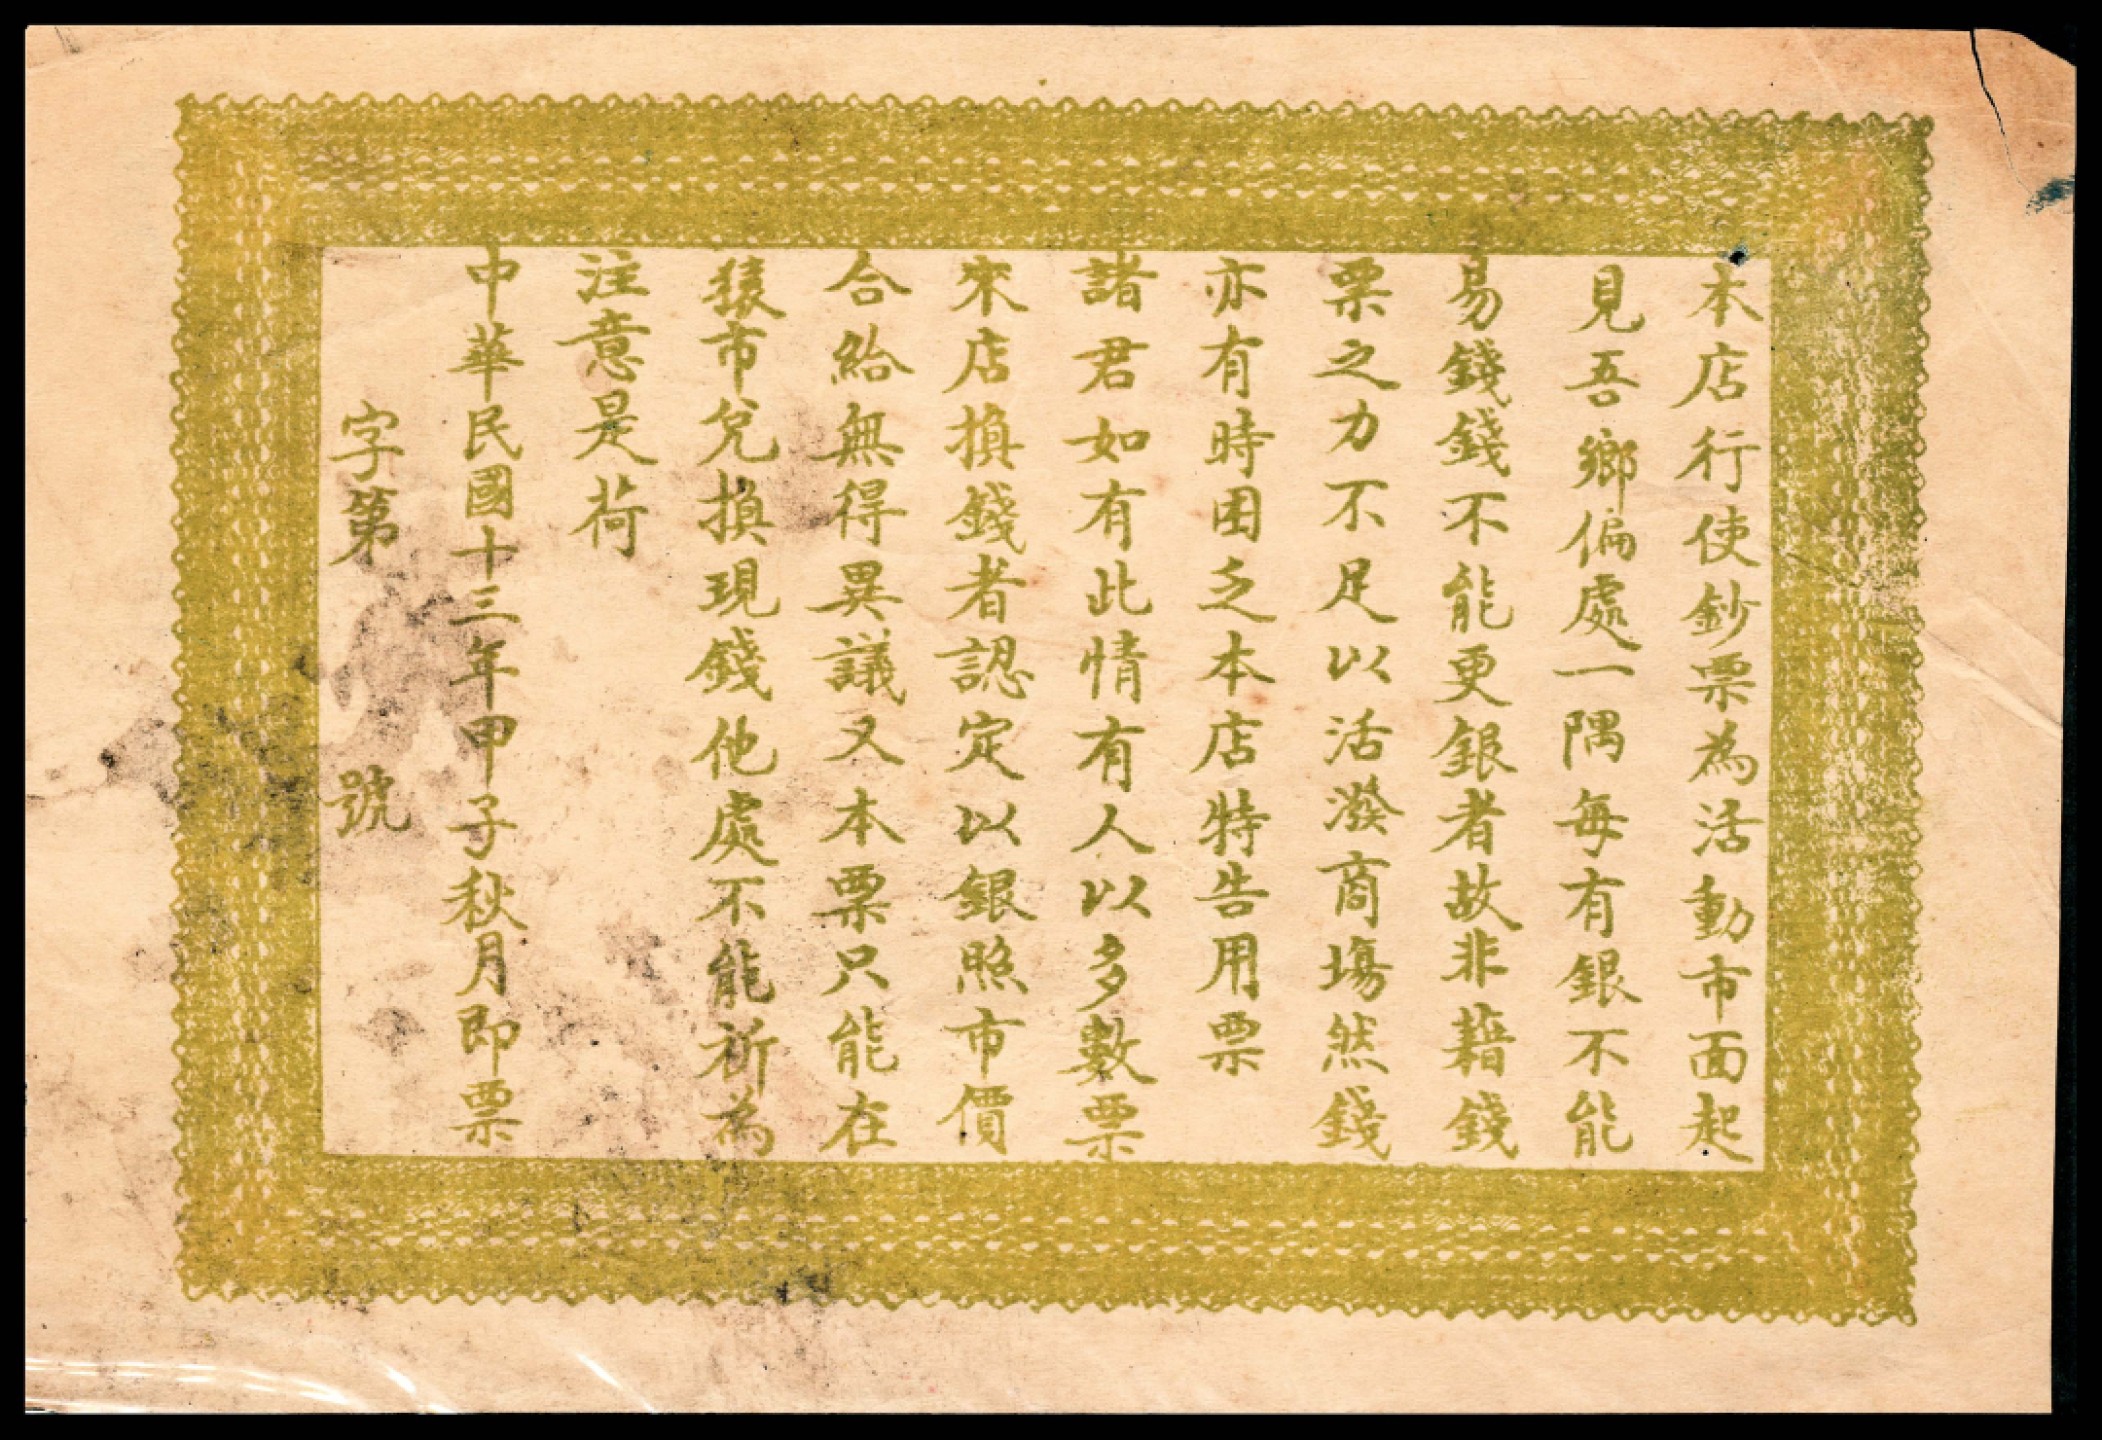 本店行使鈔票為活動市面起
見吾鄉偏處一隅每有銀不能
易錢錢不能更銀者故非藉錢
票之力不足以活潑商塲然錢
亦有時困乏本店特告用票
諸君如有此情有人以多數票
來店換錢者認定以銀照市價
合給無得異議又本票只能在
猿市兌換現錢他處不能祈為
注意是荷
中華民國十三年甲子秋月即票
字第 號